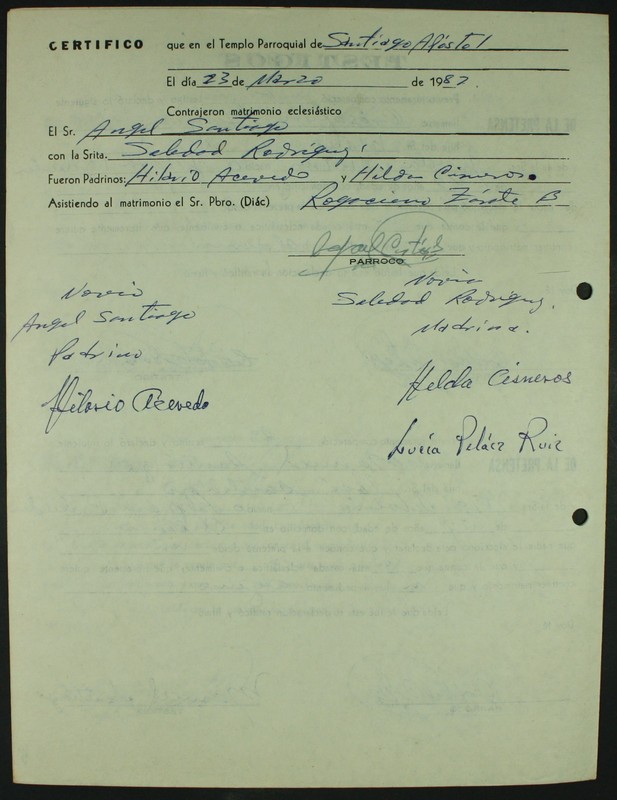 CERTIFICO que en el Templo Parroquial de Santiago Apóstol
El día 23 de Marzo de 1987.
Contrajeron matrimonio eclesiástico
El Sr. Angel Santiago
con la Srita. Soledad Rodríguez
Fueron Padrinos: Hilario Acevedo y Hilda Cisneros
Asistiendo al matrimonio el Sr. Pbro. (Diác) Rogaciano Zárate B
PARROCO
Novio
Angel Santiago
Padrino
Hilario Acevedo
Novia
Soledad Rodríguez.
Madrina.
Helda Cisneros
Lucía Peláez Ruiz